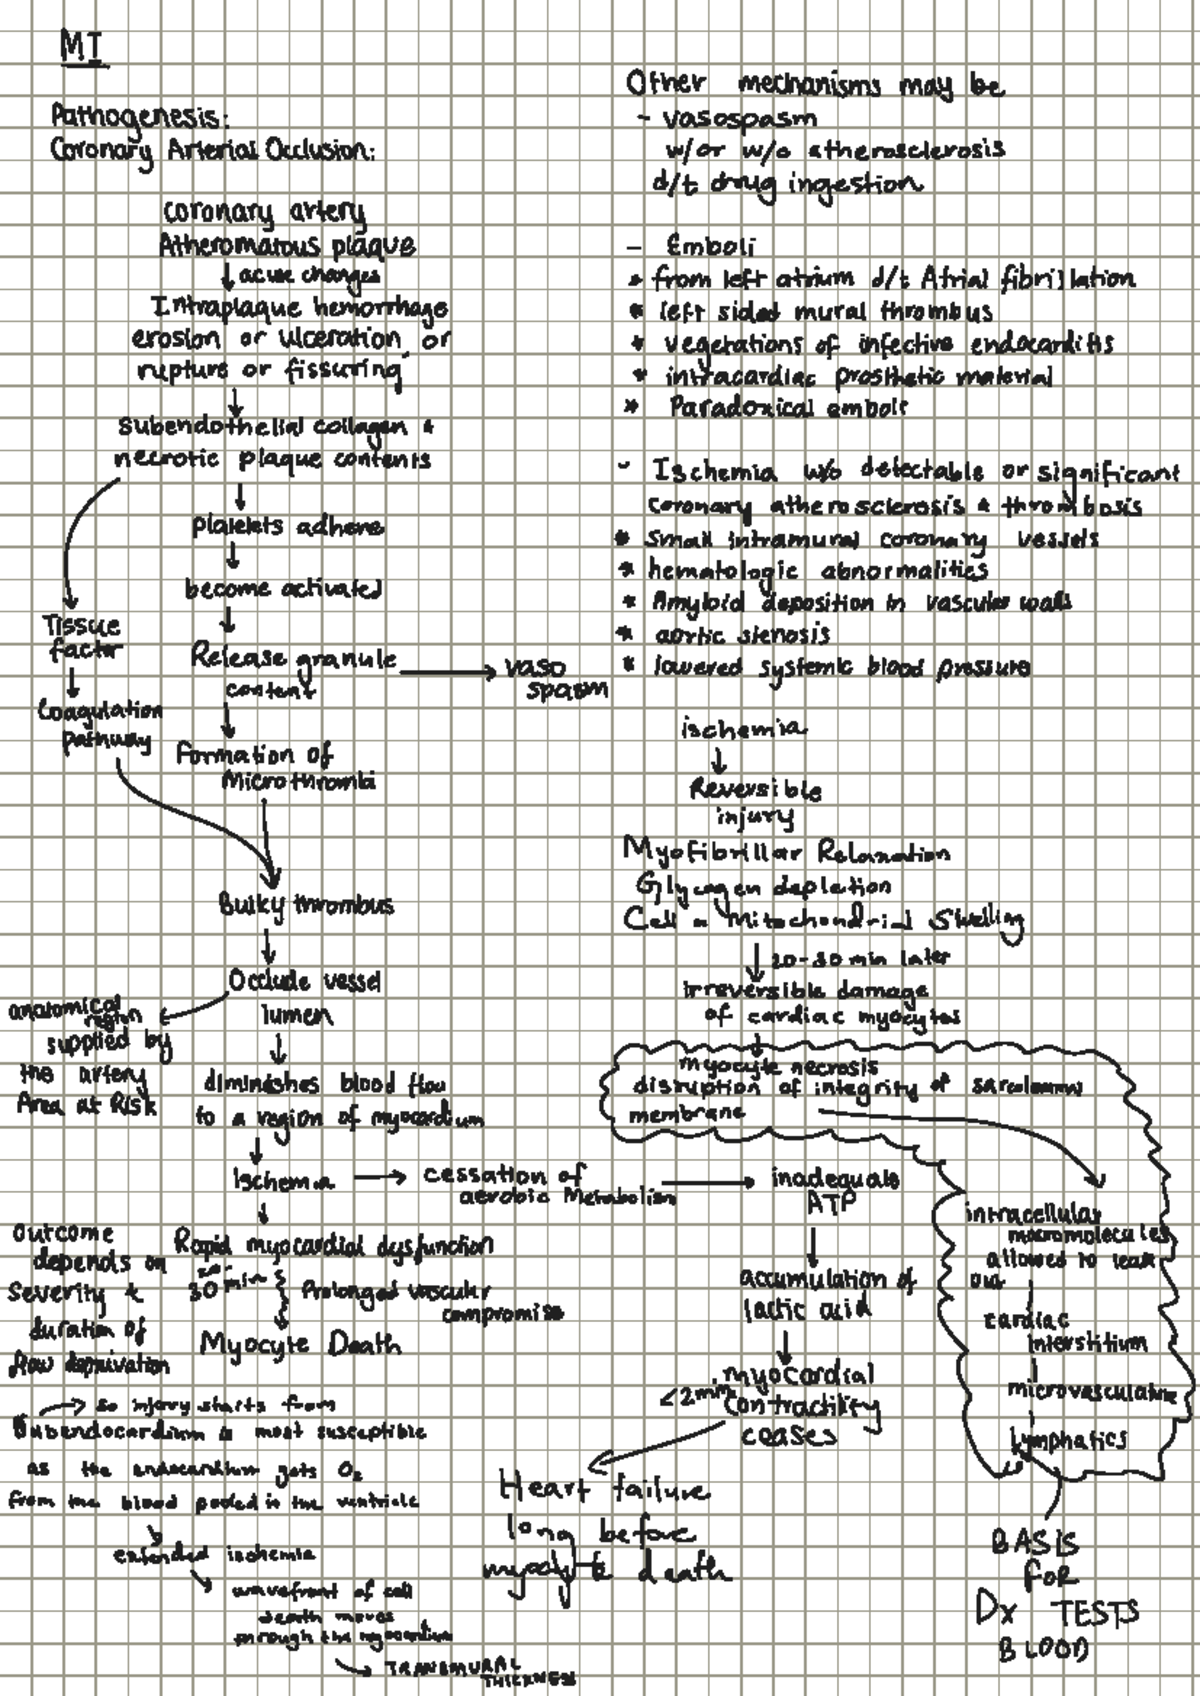 MI
Pathogenesis:
Coronary Arterial Occlusion:
coronary artery
Atheromatous plaque
↓ acute changes
Intraplaque hemorrhage
erosion or ulceration or
rupture or fissuring
↓
Subendothelial collagen &
necrotic plaque contents
↓
platelets adhere
↓
become activated
↓
Release granule → vaso
content spasm
↓
Formation of
Microthrombi
Tissue
factor
↓
Coagulation
pathway
Bulky thrombus
↓
Occlude vessel
lumen
anatomical
region
supplied by
the artery
Area at Risk
↓
diminishes blood flow
to a region of myocardium
↓
Ischemia → cessation of
aerobic Metabolism → inadequate
ATP
↓
Rapid myocardial dysfunction
30 min Prolonged vascular
compromise
Myocyte Death
outcome
depends on
Severity &
duration of
flow deprivation
→ so injury starts from
Subendocardium is most susceptible
as the endocardium gets O₂
from the blood pooled in the ventricle
extended ischemia
wavefront of cell
death moves
through the myocardium
→ TRANSMURAL
THICKNESS
↓
accumulation of
lactic acid
↓
<2min myocardial
contractility
ceases
Heart failure
long before
myocyte death
Other mechanisms may be
- vasospasm
w/or w/o atherosclerosis
d/t drug ingestion
- Emboli
* from left atrium d/t Atrial fibrillation
* left sided mural thrombus
* vegetations of infective endocarditis
* intracardiac prosthetic material
* Paradoxical emboli
- Ischemia w/o detectable or significant
coronary atherosclerosis & thrombosis
* small intramural coronary vessels
* hematologic abnormalities
* Amyloid deposition in vascular walls
* aortic stenosis
* lowered systemic blood pressure
ischemia
↓
Reversible
injury
Myofibrillar Relaxation
Glycogen depletion
Cell & Mitochondrial Swelling
↓ 20-30 min later
irreversible damage
of cardiac myocytes
↓
myocyte necrosis
disruption of integrity of
membrane
intracellular
macromolecules
allowed to leak
out
cardiac
interstitium
microvasculature
lymphatics
BASIS
FOR
Dx TESTS
BLOOD